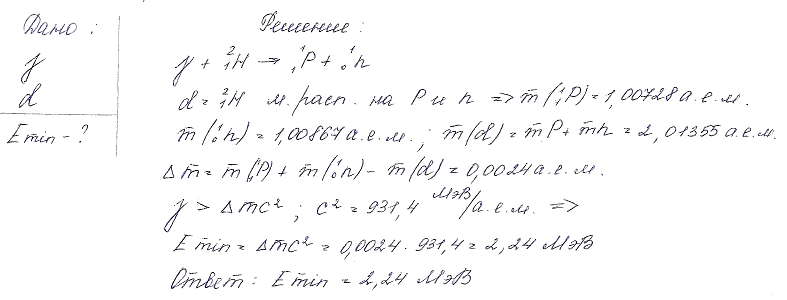 Дано:
γ
d
Emin - ?
Решение:
γ + ²₁H → ¹₁P + ¹₀n
d = ²₁H м. расп. на P и n => m(¹₁P) = 1,00728 а.е.м.
m(¹₀n) = 1,00867 а.е.м.; m(d) = mP + mn = 2,01355 а.е.м.
Δm = m(¹₁P) + m(¹₀n) - m(d) = 0,0024 а.е.м.
γ > Δmc²; c² = 931,4 МэВ/а.е.м. =>
Emin = Δmc² = 0,0024 · 931,4 = 2,24 МэВ
Ответ: Emin = 2,24 МэВ